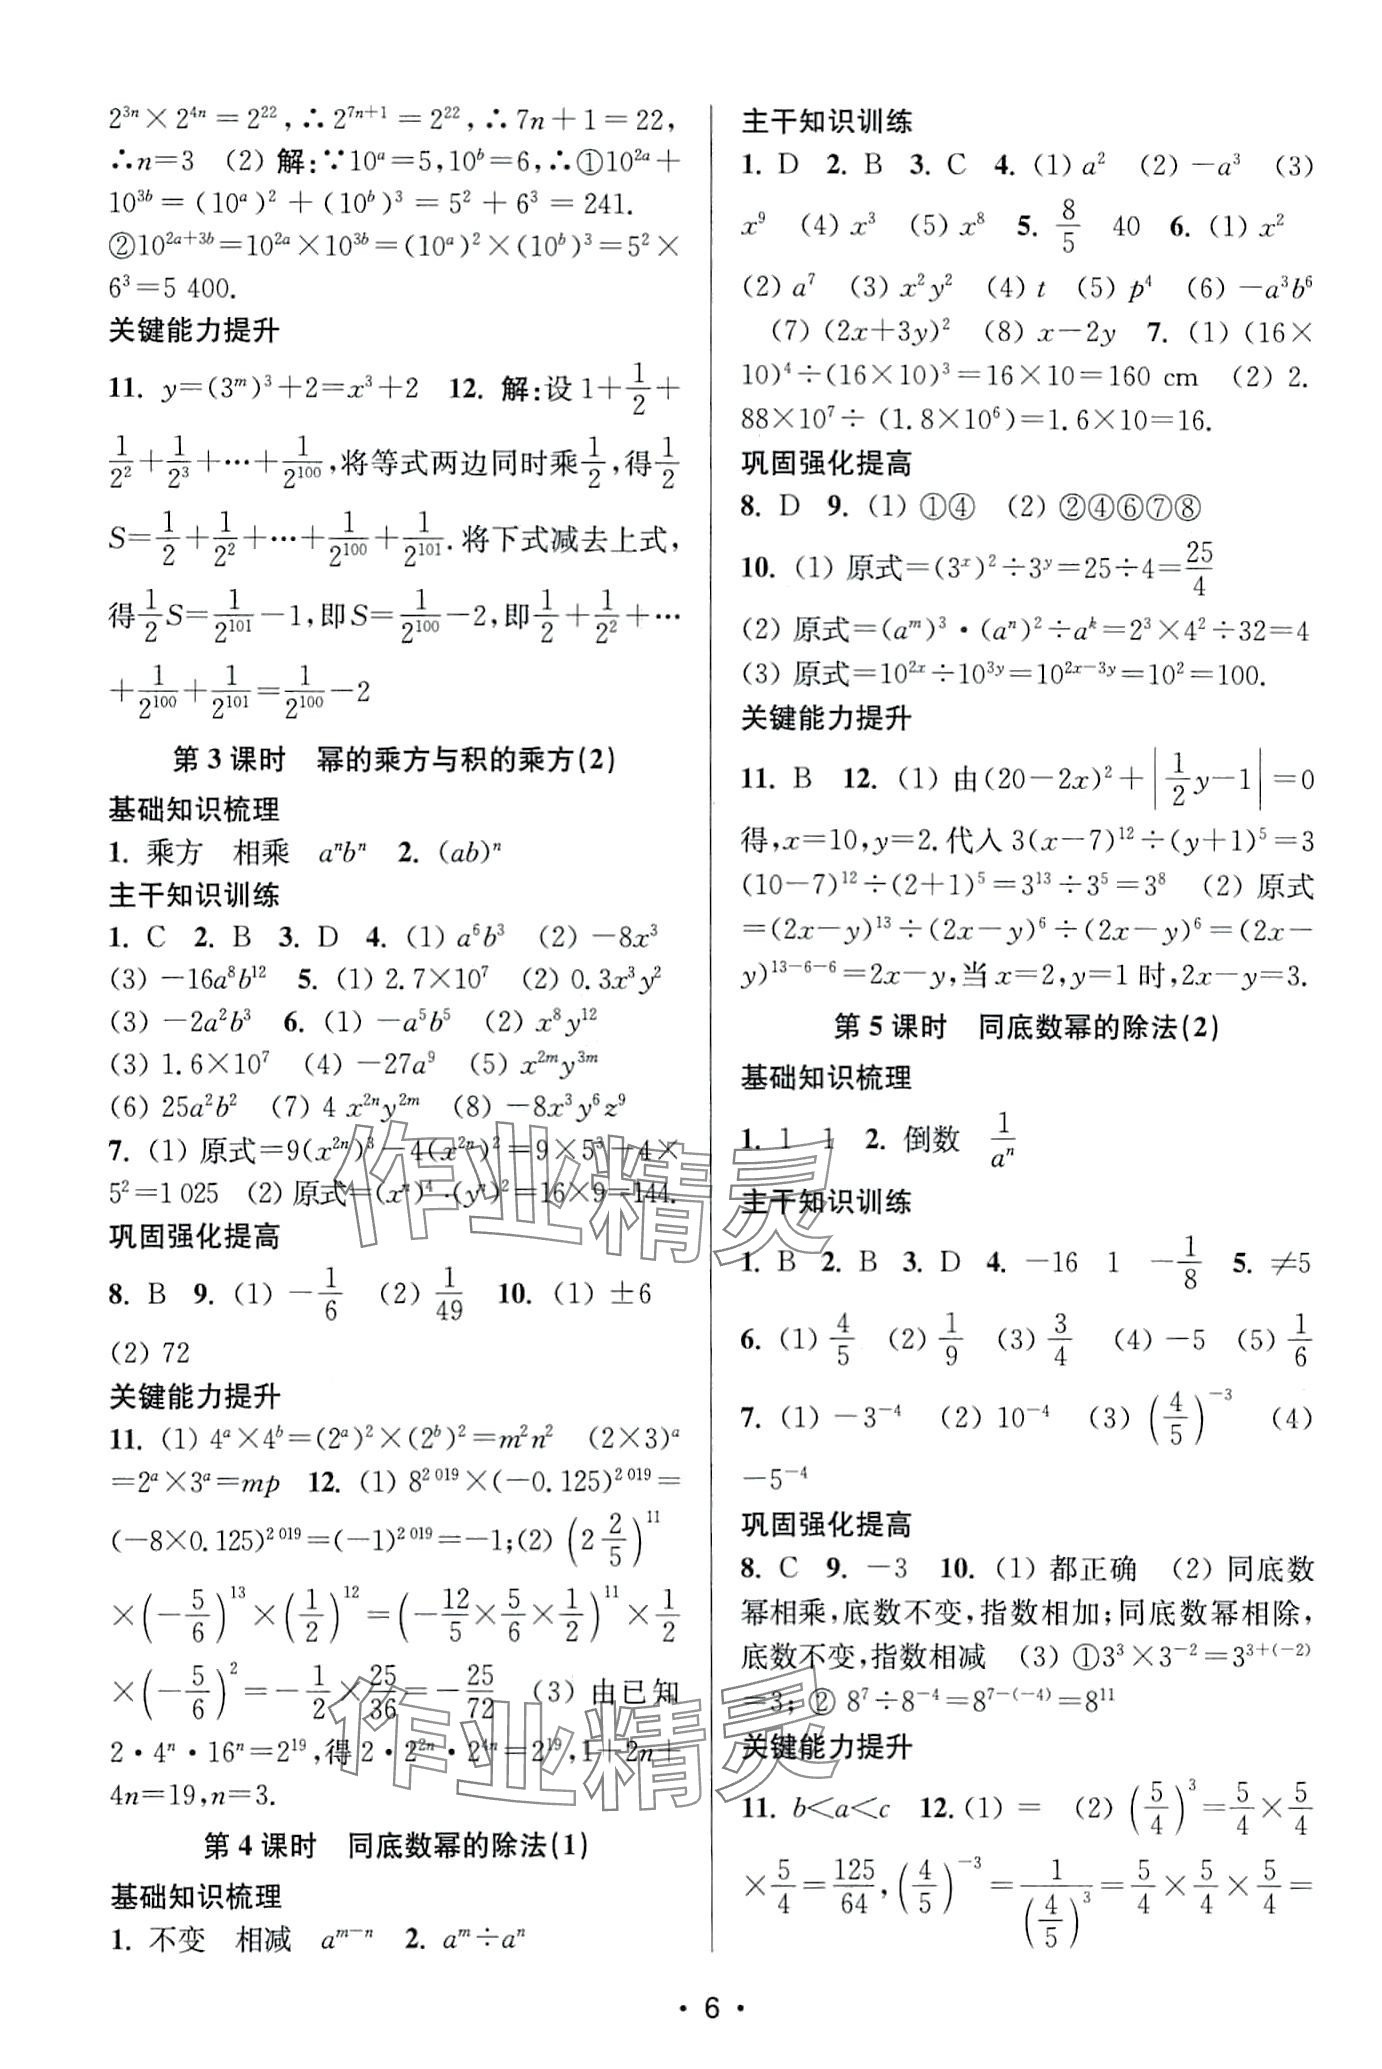 2^{3n}×2^{4n}=2^{22},∴2^{7n+1}=2^{22},∴7n+1=22,
∴n=3 (2) 解:∵10^a=5,10^b=6,∴①10^{2a}+
10^{3b}=(10^a)^2+(10^b)^3=5^2+6^3=241.
②10^{2a+3b}=10^{2a}×10^{3b}=(10^a)^2×(10^b)^3=5^2×
6^3=5 400.
关键能力提升
11. y=(3^m)^3+2=x^3+2 12. 解:设1+\frac{1}{2}+
\frac{1}{2^2}+\frac{1}{2^3}+…+\frac{1}{2^{100}},将等式两边同时乘\frac{1}{2},得\frac{1}{2}
S=\frac{1}{2}+\frac{1}{2^2}+…+\frac{1}{2^{100}}+\frac{1}{2^{101}}.将下式减去上式,
得\frac{1}{2}S=\frac{1}{2^{101}}-1,即S=\frac{1}{2^{100}}-2,即\frac{1}{2}+\frac{1}{2^2}+…
+\frac{1}{2^{100}}+\frac{1}{2^{101}}=\frac{1}{2^{100}}-2
第3课时 幂的乘方与积的乘方(2)
基础知识梳理
1. 乘方 相乘 a^nb^n 2. (ab)^n
主干知识训练
1. C 2. B 3. D 4. (1) a^6b^3 (2) -8x^3
(3) -16a^8b^{12} 5. (1) 2.7×10^7 (2) 0.3x^3y^2
(3) -2a^2b^3 6. (1) -a^5b^5 (2) x^8y^{12}
(3) 1.6×10^7 (4) -27a^9 (5) x^{2m}y^{3m}
(6) 25a^2b^2 (7) 4 x^{2n}y^{2m} (8) -8x^3y^6z^9
7. (1) 原式=9(x^{2n})^3-4(x^{2n})^2=9×5^3+4×
5^2=1 025 (2) 原式=(x^n)^4·(y^n)^2=16×9=144.
巩固强化提高
8. B 9. (1) -\frac{1}{6} (2) \frac{1}{49} 10. (1) ±6
(2) 72
关键能力提升
11. (1) 4^a×4^b=(2^a)^2×(2^b)^2=m^2n^2 (2×3)^a
=2^a×3^a=mp 12. (1) 8^{2 019}×(-0.125)^{2 019}=
(-8×0.125)^{2 019}=(-1)^{2 019}=-1;(2) (2\frac{2}{5})^{11}
×(-\frac{5}{6})^{13}×(\frac{1}{2})^{12}=(-\frac{12}{5}×\frac{5}{6}×\frac{1}{2})^{11}×\frac{1}{2}
×(-\frac{5}{6})^2=-\frac{1}{2}×\frac{25}{36}=-\frac{25}{72} (3) 由已知
2·4^n·16^n=2^{19},得2·2^{2n}·2^{4n}=2^{19},1+2n+
4n=19,n=3.
第4课时 同底数幂的除法(1)
基础知识梳理
1. 不变 相减 a^{m-n} 2. a^m÷a^n
主干知识训练
1. D 2. B 3. C 4. (1) a^2 (2) -a^3 (3)
x^9 (4) x^3 (5) x^8 5. \frac{8}{5} 40 6. (1) x^2
(2) a^7 (3) x^2y^2 (4) t (5) p^4 (6) -a^3b^6
(7) (2x+3y)^2 (8) x-2y 7. (1) (16×
10)^4÷(16×10)^3=16×10=160 cm (2) 2.
88×10^7÷(1.8×10^6)=1.6×10=16.
巩固强化提高
8. D 9. (1) ①④ (2) ②④⑥⑦⑧
10. (1) 原式=(3^x)^2÷3^y=25÷4=\frac{25}{4}
(2) 原式=(a^m)^3·(a^n)^2÷a^k=2^3×4^2÷32=4
(3) 原式=10^{2x}÷10^{3y}=10^{2x-3y}=10^2=100.
关键能力提升
11. B 12. (1) 由(20-2x)^2+|\frac{1}{2}y-1|=0
得,x=10,y=2.代入3(x-7)^{12}÷(y+1)^5=3
(10-7)^{12}÷(2+1)^5=3^{13}÷3^5=3^8 (2) 原式
=(2x-y)^{13}÷(2x-y)^6÷(2x-y)^6=(2x-
y)^{13-6-6}=2x-y,当x=2,y=1时,2x-y=3.
第5课时 同底数幂的除法(2)
基础知识梳理
1. 1 1 2. 倒数 \frac{1}{a^n}
主干知识训练
1. B 2. B 3. D 4. -16 1 -\frac{1}{8} 5. ≠5
6. (1) \frac{4}{5} (2) \frac{1}{9} (3) \frac{3}{4} (4) -5 (5) \frac{1}{6}
7. (1) -3^{-4} (2) 10^{-4} (3) (\frac{4}{5})^{-3} (4)
-5^{-4}
巩固强化提高
8. C 9. -3 10. (1) 都正确 (2) 同底数
幂相乘,底数不变,指数相加;同底数幂相除,
底数不变,指数相减 (3) ①3^3×3^{-2}=3^{3+(-2)}
=3;② 8^7÷8^{-4}=8^{7-(-4)}=8^{11}
关键能力提升
11. b<a<c 12. (1) = (2) (\frac{5}{4})^3=\frac{5}{4}×\frac{5}{4}
×\frac{5}{4}=\frac{125}{64},(\frac{4}{5})^{-3}=\frac{1}{(\frac{4}{5})^3}=\frac{5}{4}×\frac{5}{4}×\frac{5}{4}=
· 6 ·
作业精灵
作业精灵